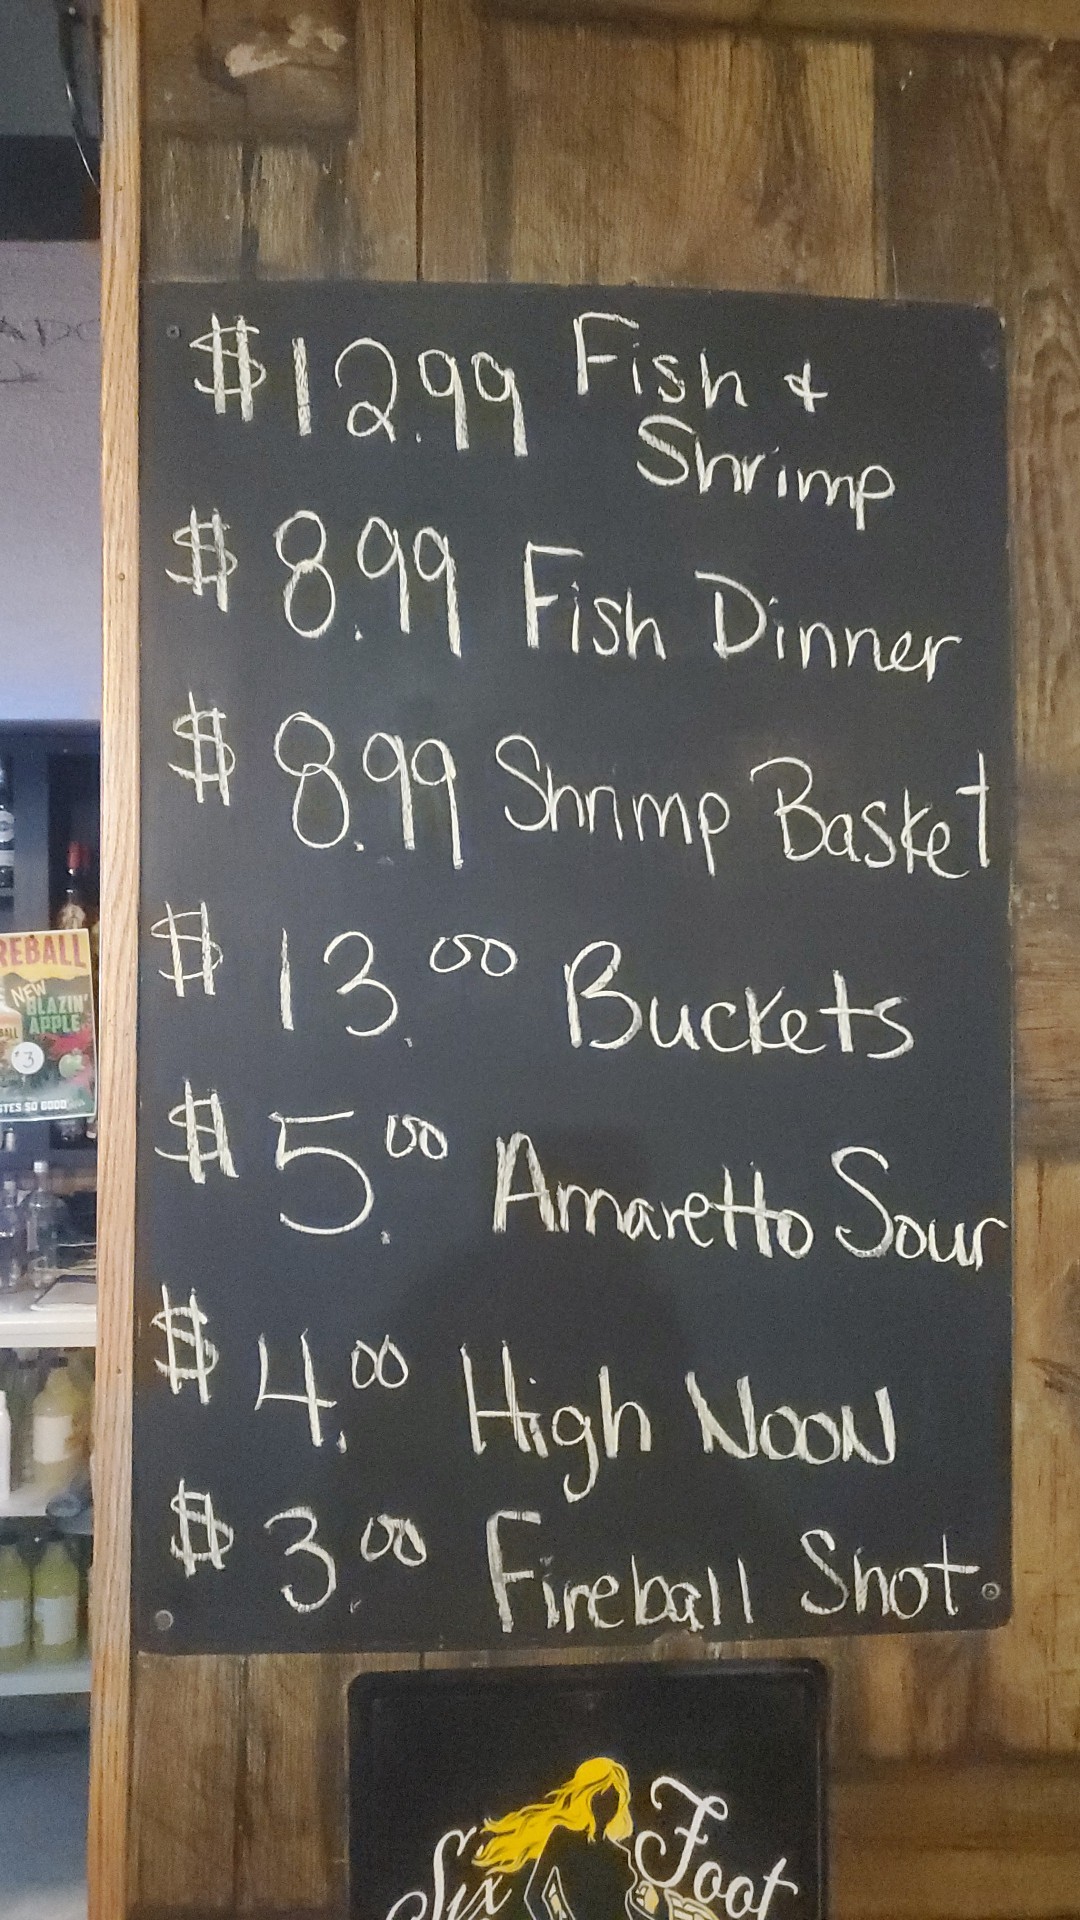 $12.99 Fish &
Shrimp
$8.99 Fish Dinner
$8.99 Shrimp Basket
$13.00 Buckets
$5.00 Amaretto Sour
$4.00 High Noon
$3.00 Fireball Shot
REBALL
NEW
BLAZIN'
APPLE
BALL
$3
STES SO GOOD
Six Foot